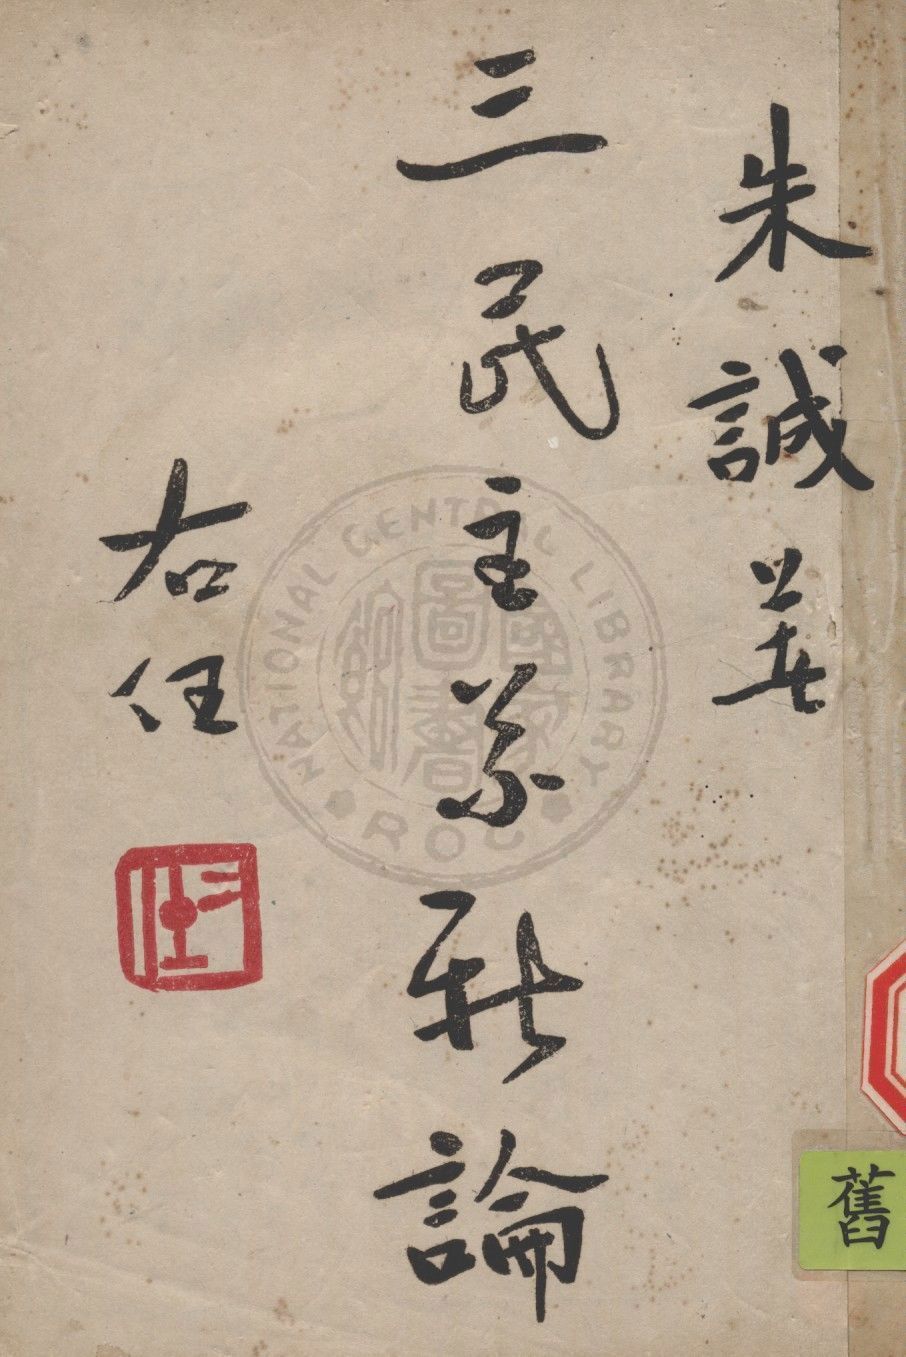 朱誠著
三民主義新論
右任
NATIONAL CENTRAL LIBRARY
國家圖書館
ROC
舊